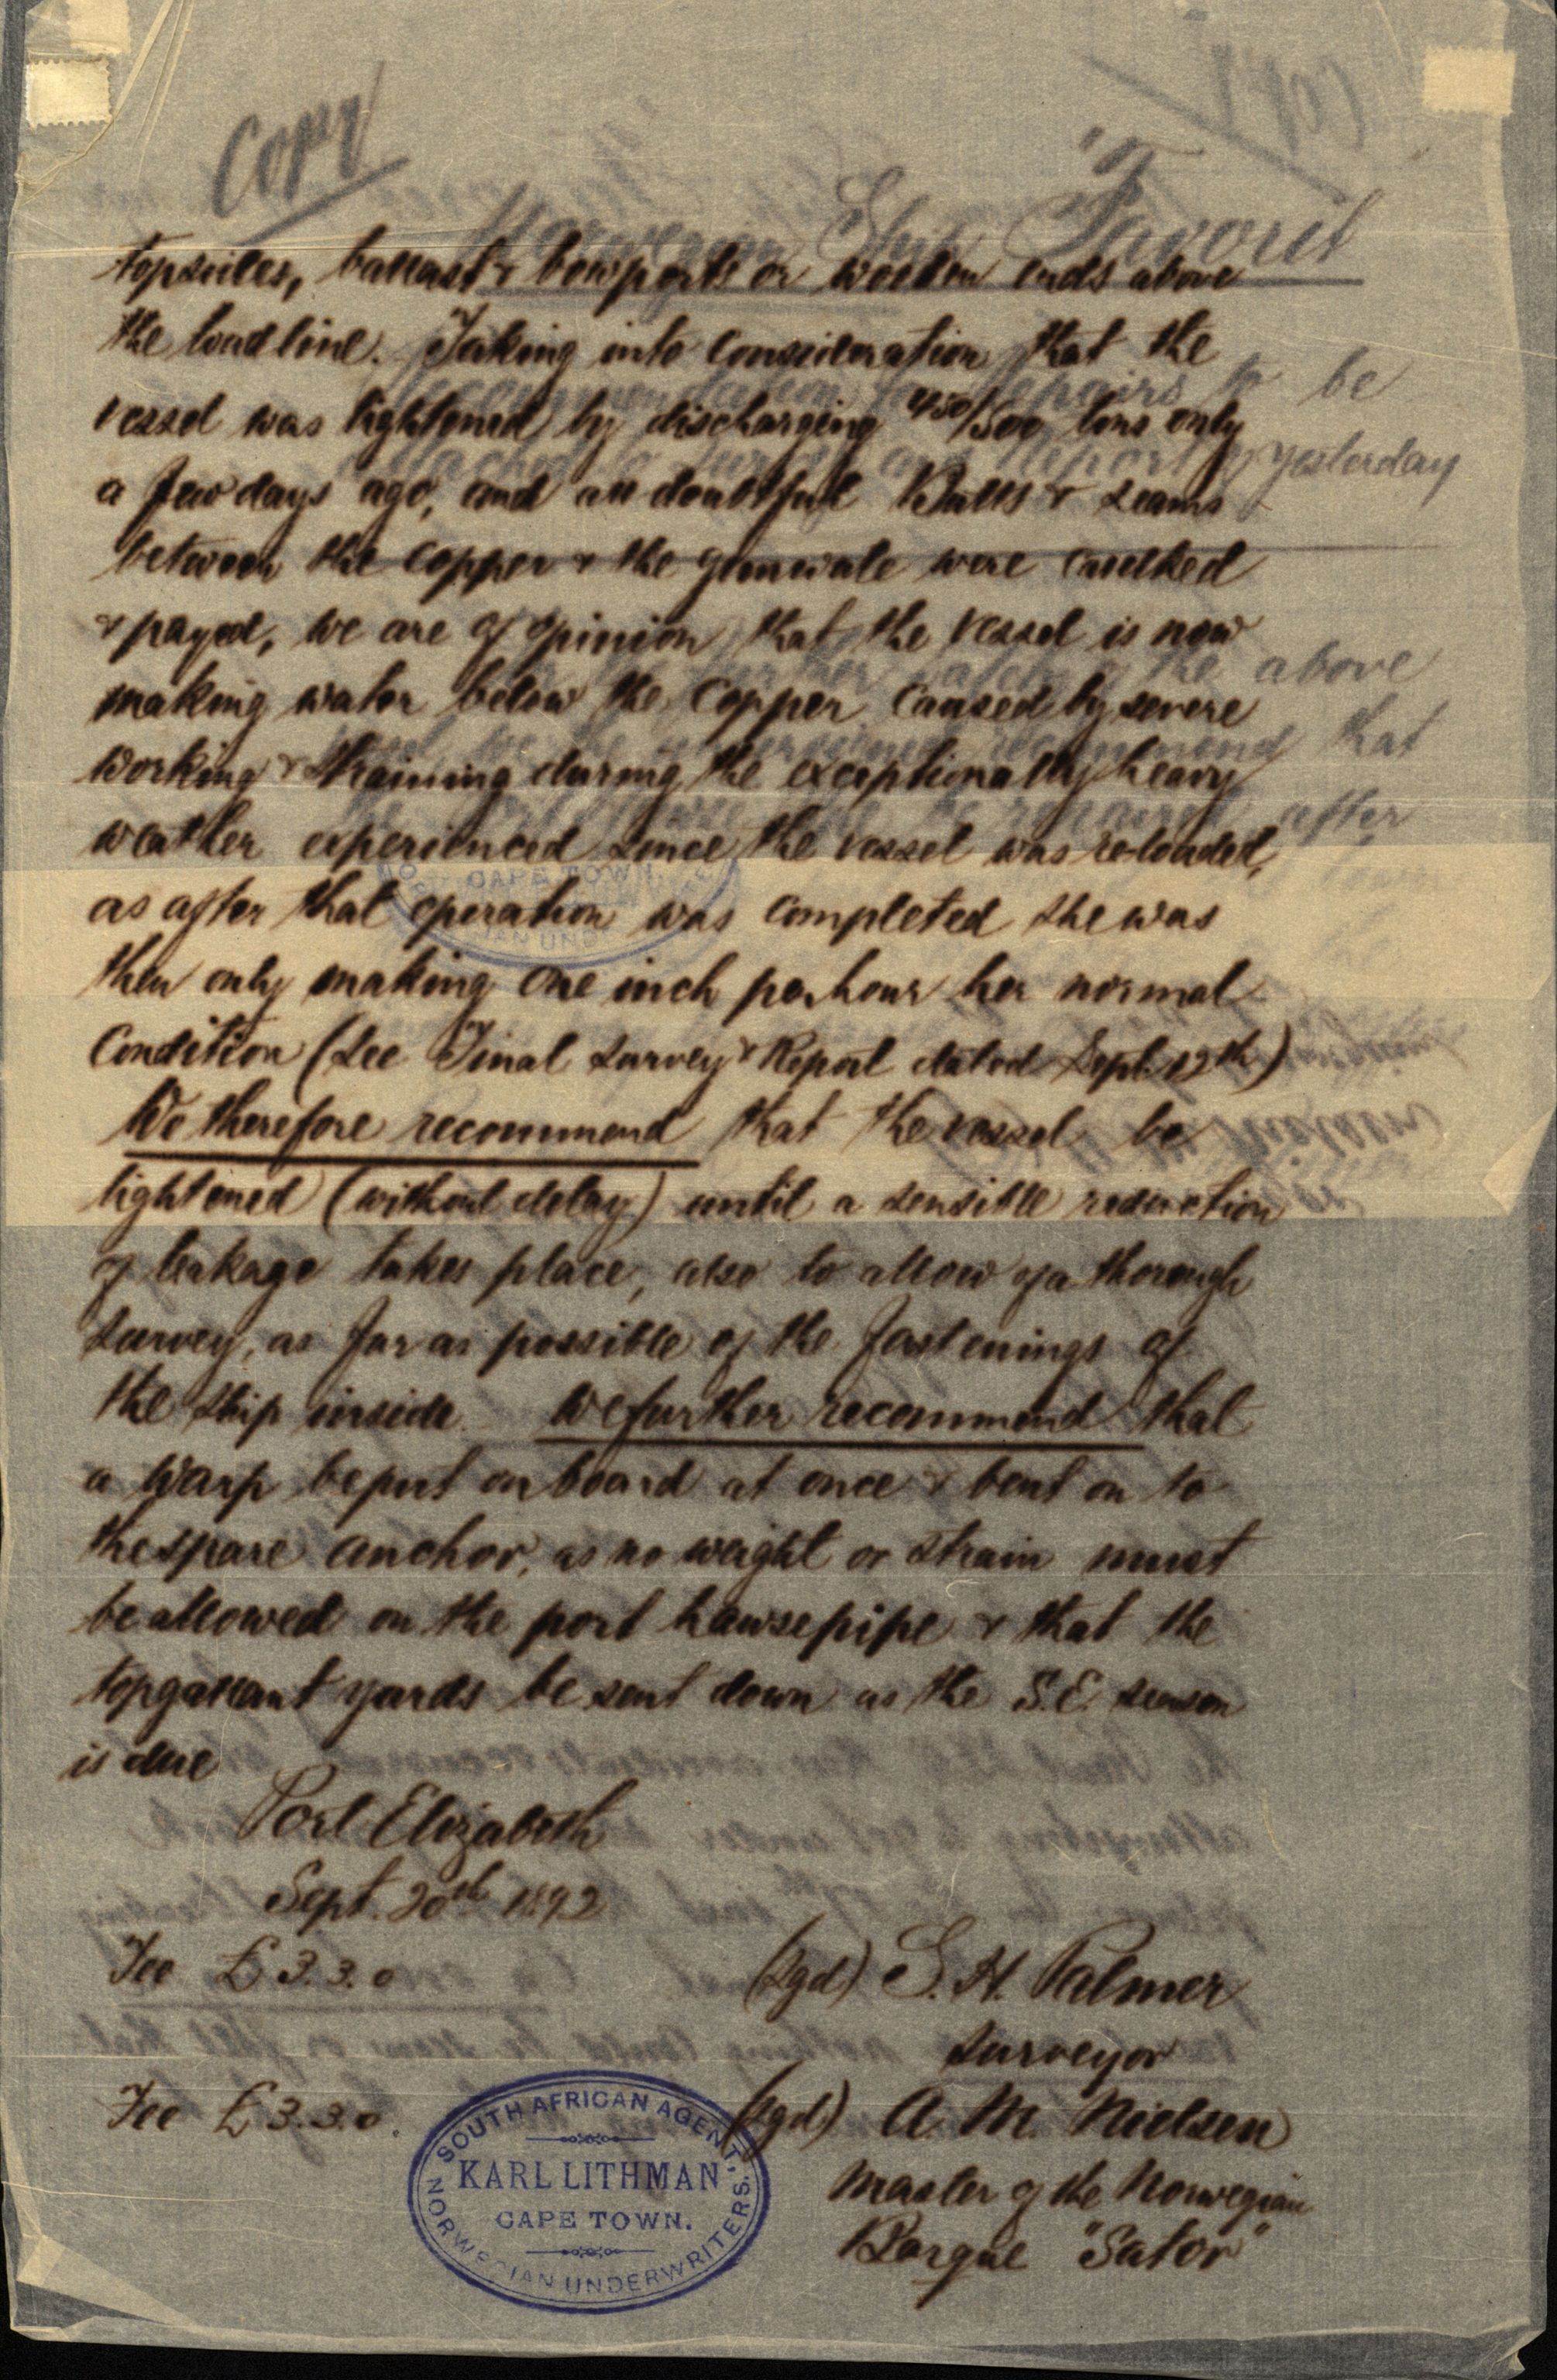 Copy
Norwegian Ship "Favorit
topsides, ballast & bowports or wooden ends above
the loadline. Taking into consideration that the
vessel was lightened by discharging 450/500 tons only
a few days ago, and all doubtful Butts & seams
between the copper & the gunwale were caulked
& payed, we are of opinion that the vessel is now
making water below the copper caused by severe
working & straining during the exceptionally heavy
weather experienced since the vessel was re-loaded,
as after that operation was completed she was
then only making one inch per hour her normal
condition (see Final survey & Report dated Sept. 12th)
We therefore recommend that the vessel be
lightened (without delay) until a sensible reduction
of leakage takes place, also to allow of a thorough
survey, as far as possible of the fastenings of
the ship inside. We further recommend that
a warp be put on board at once & bent on to
the spare anchor, as no weight or strain must
be allowed on the port hawsepipe & that the
topgallant yards be sent down as the S.E. season
is due
Port Elizabeth
Sept. 20th 1892
Fee £3.3.0
(sgd) S. H. Palmer
Surveyor
Fee £3.3.0.
(sgd) A. M. Nielsen
Master of the Norwegian
Barque "Sator"
SOUTH AFRICAN AGENT,
KARL LITHMAN
CAPE TOWN.
NORWEGIAN UNDERWRITERS.
be
yesterday
above
recommend that
after
CAPE TOWN.